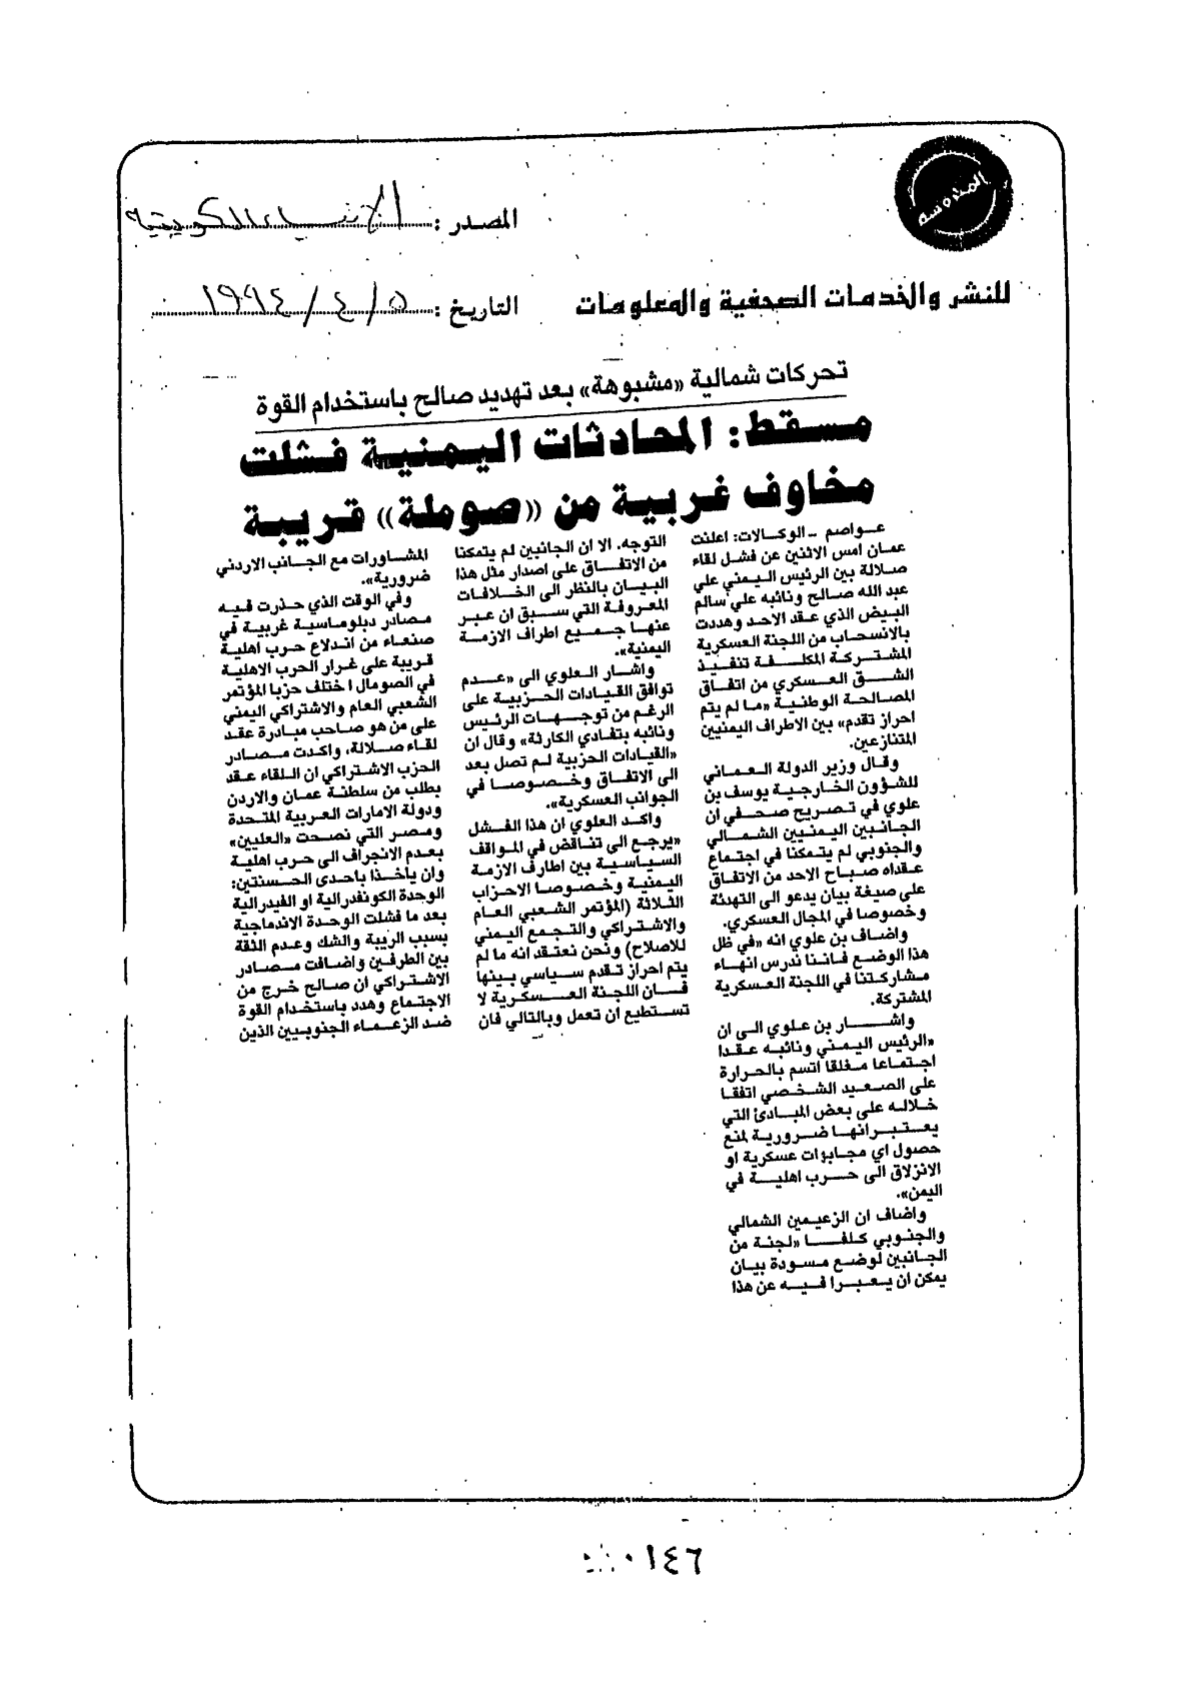 المصدر : الانباء الكويتية
للنشر والخدمات الصحفية والمعلومات
التاريخ : ٥ / ٤ / ١٩٩٤
تحركات شمالية «مشبوهة» بعد تهديد صالح باستخدام القوة
مسقط: المحادثات اليمنية فشلت
مخاوف غربية من «صوملة» قريبة
عواصم - الوكالات: اعلنت
عمان امس الاثنين عن فشل لقاء
صلالة بين الرئيس اليمني علي
عبد الله صالح ونائبه علي سالم
البيض الذي عقد الاحد وهددت
بالانسحاب من اللجنة العسكرية
المشتركة المكلفة تنفيذ
الشق العسكري من اتفاق
المصالحة الوطنية «ما لم يتم
احراز تقدم» بين الاطراف اليمنيين
المتنازعين.
وقال وزير الدولة العماني
للشؤون الخارجية يوسف بن
علوي في تصريح صحفي ان
الجانبين اليمنيين الشمالي
والجنوبي لم يتمكنا في اجتماع
عقداه صباح الاحد من الاتفاق
على صيغة بيان يدعو الى التهدئة
وخصوصا في المجال العسكري.
واضاف بن علوي انه «في ظل
هذا الوضع فاننا ندرس انهاء
مشاركتنا في اللجنة العسكرية
المشتركة.
واشار بن علوي الى ان
«الرئيس اليمني ونائبه عقدا
اجتماعا مغلقا اتسم بالحرارة
على الصعيد الشخصي اتفقا
خلاله على بعض المبادئ التي
يعتبرانها ضرورية لمنع
حصول اي مجابهات عسكرية او
الانزلاق الى حرب اهلية في
اليمن».
واضاف ان الزعيمين الشمالي
والجنوبي كلفا «لجنة من
الجانبين لوضع مسودة بيان
يمكن ان يعبرا فيه عن هذا
التوجه. الا ان الجانبين لم يتمكنا
من الاتفاق على اصدار مثل هذا
البيان بالنظر الى الخلافات
المعروفة التي سبق ان عبر
عنها جميع اطراف الازمة
اليمنية».
واشار العلوي الى «عدم
توافق القيادات الحزبية على
الرغم من توجهات الرئيس
ونائبه بتفادي الكارثة» وقال ان
«القيادات الحزبية لم تصل بعد
الى الاتفاق وخصوصا في
الجوانب العسكرية».
واكد العلوي ان هذا الفشل
«يرجع الى تناقض في المواقف
السياسية بين اطارف الازمة
اليمنية وخصوصا الاحزاب
الثلاثة (المؤتمر الشعبي العام
والاشتراكي والتجمع اليمني
للاصلاح) ونحن نعتقد انه ما لم
يتم احراز تقدم سياسي بينها
فان اللجنة العسكرية لا
تستطيع ان تعمل وبالتالي فان
المشاورات مع الجانب الاردني
ضرورية».
وفي الوقت الذي حذرت فيه
مصادر دبلوماسية غربية في
صنعاء من اندلاع حرب اهلية
قريبة على غرار الحرب الاهلية
في الصومال اختلف حزبا المؤتمر
الشعبي العام والاشتراكي اليمني
على من هو صاحب مبادرة عقد
لقاء صلالة، واكدت مصادر
الحزب الاشتراكي ان اللقاء عقد
بطلب من سلطنة عمان والاردن
ودولة الامارات العربية المتحدة
ومصر التي نصحت «العليين»
بعدم الانجراف الى حرب اهلية
وان يأخذا باحدى الحسنتين:
الوحدة الكونفدرالية او الفيدرالية
بعد ما فشلت الوحدة الاندماجية
بسبب الريبة والشك وعدم الثقة
بين الطرفين واضافت مصادر
الاشتراكي ان صالح خرج من
الاجتماع وهدد باستخدام القوة
ضد الزعماء الجنوبيين الذين
٠١٤٦